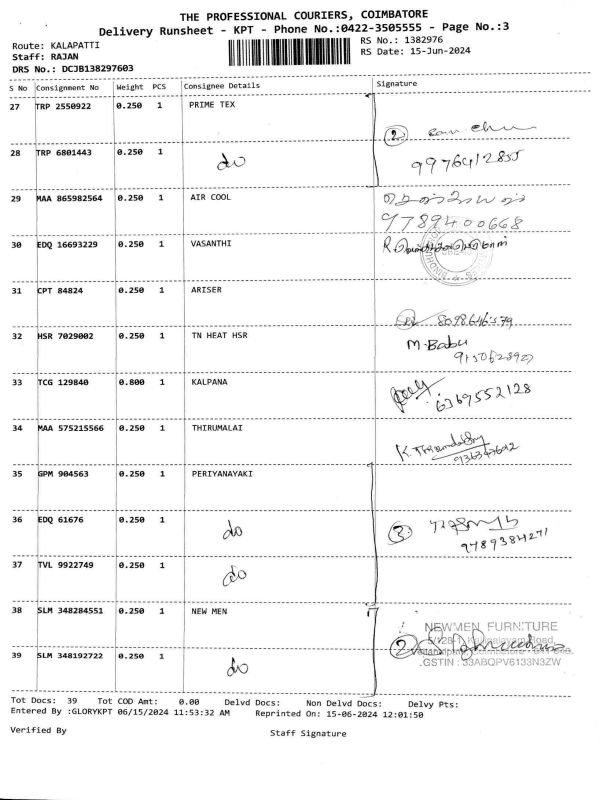 THE PROFESSIONAL COURIERS, COIMBATORE
Delivery Runsheet - KPT - Phone No.:0422-3505555 - Page No.:3
Route: KALAPATTI
RS No.: 1382976
Staff: RAJAN
RS Date: 15-Jun-2024
DRS No.: DCJB138297603
S No Consignment No Weight PCS Consignee Details Signature
27 TRP 2550922 0.250 1 PRIME TEX
②
28 TRP 6801443 0.250 1 do 9976412855
29 MAA 865982564 0.250 1 AIR COOL
9789400668
30 EDQ 16693229 0.250 1 VASANTHI
31 CPT 84824 0.250 1 ARISER
8098646579
32 HSR 7029002 0.250 1 TN HEAT HSR M.Babu
33 TCG 129840 0.800 1 KALPANA
6369552128
34 MAA 575215566 0.250 1 THIRUMALAI
35 GPM 904563 0.250 1 PERIYANAYAKI
36 EDQ 61676 0.250 1 do ③
9789384271
37 TVL 9922749 0.250 1 do
38 SLM 348284551 0.250 1 NEW MEN
NEWMEN FURNITURE
②
39 SLM 348192722 0.250 1 do GSTIN : 33ABQPV6133N3ZW
Tot Docs: 39 Tot COD Amt: 0.00 Delvd Docs: Non Delvd Docs: Delvy Pts:
Entered By :GLORYKPT 06/15/2024 11:53:32 AM Reprinted On: 15-06-2024 12:01:50
Verified By Staff Signature